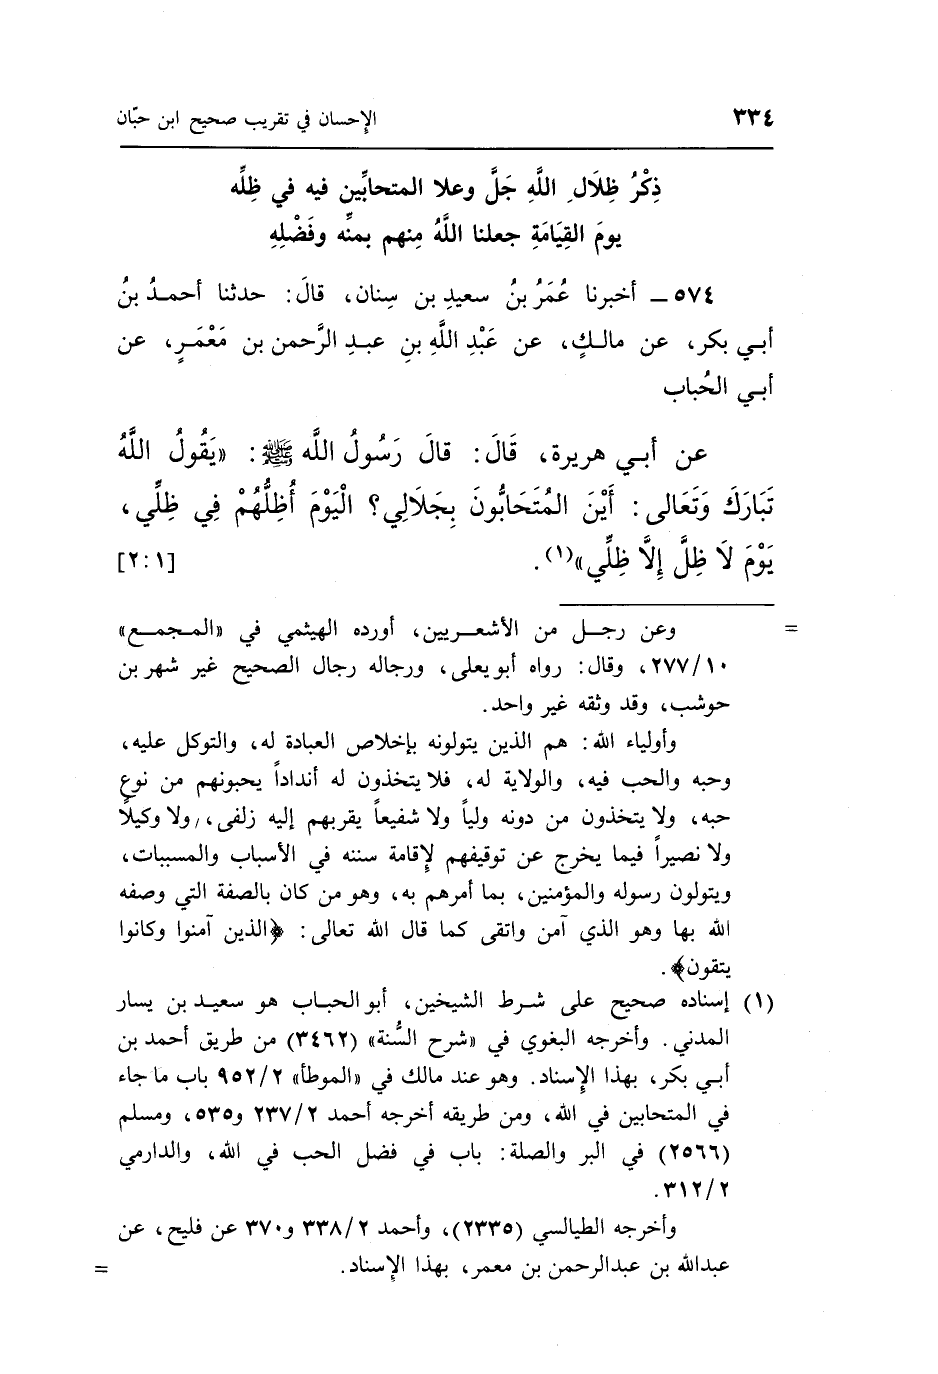 ٣٣٤ الإحسان في تقريب صحيح ابن حبّان
ذِكْرُ ظِلَالِ اللَّهِ جَلَّ وعلا المتحابِّين فيه في ظِلِّه
يومَ القِيَامَةِ جعلنا اللَّهُ مِنهم بمنِّه وفَضْلِهِ
٥٧٤ ـ أخبرنا عُمَرُ بنُ سعيدِ بن سِنان، قالَ: حدثنا أحمدُ بنُ
أبي بكر، عن مالكٍ، عن عَبْدِ اللَّهِ بنِ عبدِ الرَّحمن بن مَعْمَرٍ، عن
أبي الحُباب
عن أبي هريرة، قَالَ: قالَ رَسُولُ اللَّه ﷺ: «يَقُولُ اللَّهُ
تَبَارَكَ وَتَعَالى: أَيْنَ المُتَحَابُّونَ بِجَلَالِي؟ الْيَوْمَ أُظِلُّهُمْ فِي ظِلِّي،
يَوْمَ لَا ظِلَّ إِلَّا ظِلِّي»(١). [٢:١]
= وعن رجل من الأشعريين، أورده الهيثمي في «المجمع»
٢٧٧/١٠، وقال: رواه أبو يعلى، ورجاله رجال الصحيح غير شهر بن
حوشب، وقد وثقه غير واحد.
وأولياء الله: هم الذين يتولونه بإخلاص العبادة له، والتوكل عليه،
وحبه والحب فيه، والولاية له، فلا يتخذون له أنداداً يحبونهم من نوع
حبه، ولا يتخذون من دونه ولياً ولا شفيعاً يقربهم إليه زلفى، ولا وكيلاً
ولا نصيراً فيما يخرج عن توفيقهم لإقامة سننه في الأسباب والمسببات،
ويتولون رسوله والمؤمنين، بما أمرهم به، وهو من كان بالصفة التي وصفه
الله بها وهو الذي آمن واتقى كما قال الله تعالى: ﴿الذين آمنوا وكانوا
يتقون﴾.
(١) إسناده صحيح على شرط الشيخين، أبو الحباب هو سعيد بن يسار
المدني. وأخرجه البغوي في «شرح السُّنة» (٣٤٦٢) من طريق أحمد بن
أبي بكر، بهذا الإسناد. وهو عند مالك في «الموطأ» ٩٥٢/٢ باب ما جاء
في المتحابين في الله، ومن طريقه أخرجه أحمد ٢٣٧/٢ و٥٣٥، ومسلم
(٢٥٦٦) في البر والصلة: باب في فضل الحب في الله، والدارمي
٣١٢/٢.
وأخرجه الطيالسي (٢٣٣٥)، وأحمد ٣٣٨/٢ و٣٧٠ عن فليح، عن
عبدالله بن عبدالرحمن بن معمر، بهذا الإسناد. =